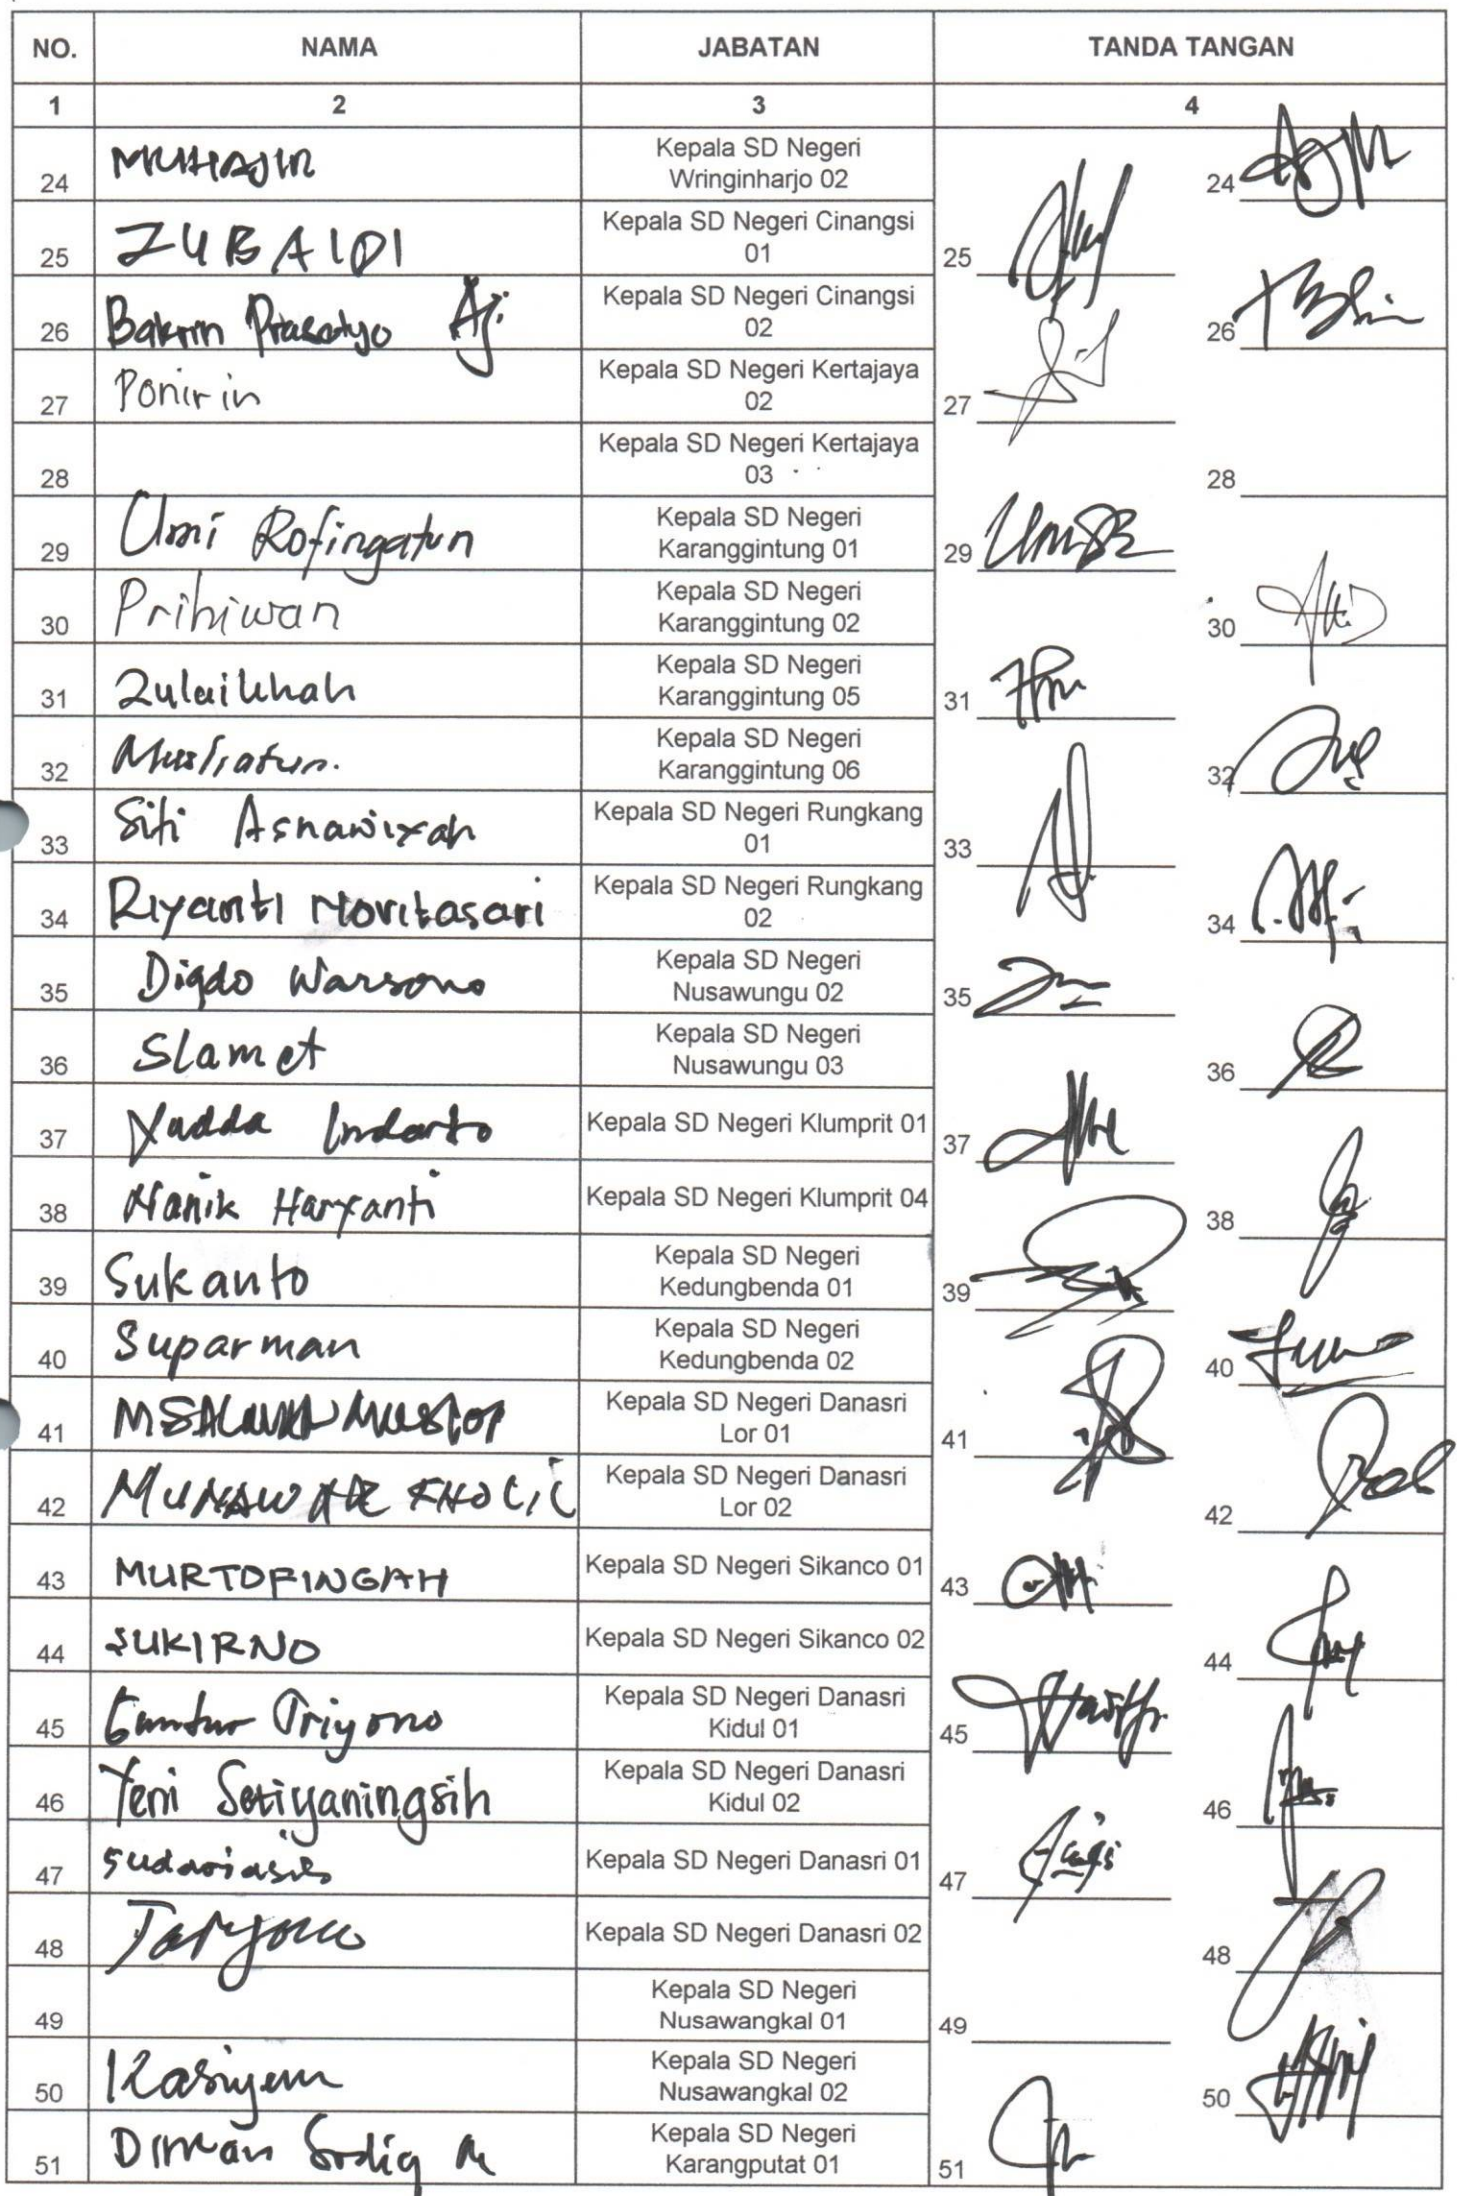 NO. NAMA JABATAN TANDA TANGAN
1 2 3 4
24 MUHAJIR Kepala SD Negeri Wringinharjo 02 24
25 ZUBAIDI Kepala SD Negeri Cinangsi 01 25
26 Bakrin Prasetyo Aji Kepala SD Negeri Cinangsi 02 26
27 Ponirin Kepala SD Negeri Kertajaya 02 27
28 Kepala SD Negeri Kertajaya 03 28
29 Umi Rofingatun Kepala SD Negeri Karanggintung 01 29
30 Prihiwan Kepala SD Negeri Karanggintung 02 30
31 Zulaikhah Kepala SD Negeri Karanggintung 05 31
32 Musliatun. Kepala SD Negeri Karanggintung 06 32
33 Siti Asnawiyah Kepala SD Negeri Rungkang 01 33
34 Riyanti Novitasari Kepala SD Negeri Rungkang 02 34
35 Digdo Warsono Kepala SD Negeri Nusawungu 02 35
36 Slamet Kepala SD Negeri Nusawungu 03 36
37 Yudda Indarto Kepala SD Negeri Klumprit 01 37
38 Nanik Haryanti Kepala SD Negeri Klumprit 04 38
39 Sukanto Kepala SD Negeri Kedungbenda 01 39
40 Suparman Kepala SD Negeri Kedungbenda 02 40
41 Kepala SD Negeri Danasri Lor 01 41
42 MUNAWAR KHOLIL Kepala SD Negeri Danasri Lor 02 42
43 MURTOFINGAH Kepala SD Negeri Sikanco 01 43
44 SUKIRNO Kepala SD Negeri Sikanco 02 44
45 Guntur Triyono Kepala SD Negeri Danasri Kidul 01 45
46 Yeni Setiyaningsih Kepala SD Negeri Danasri Kidul 02 46
47 Kepala SD Negeri Danasri 01 47
48 Taryono Kepala SD Negeri Danasri 02 48
49 Kepala SD Negeri Nusawangkal 01 49
50 Kasiyem Kepala SD Negeri Nusawangkal 02 50
51 Diman Sodiq Kepala SD Negeri Karangputat 01 51